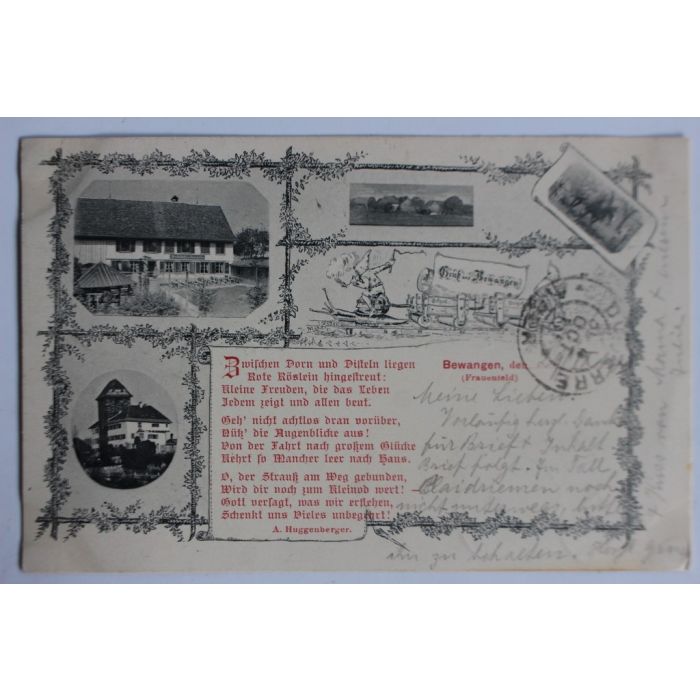 Gruß aus Bewangen
Bewangen, den
(Frauenfeld)
Zwischen Dorn und Disteln liegen
Rote Röslein hingestreut:
Kleine Freuden, die das Leben
Jedem zeigt und allen beut.
Geh' nicht achtlos dran vorüber,
Nütz' die Augenblicke aus!
Von der Fahrt nach großem Glücke
Kehrt so Mancher leer nach Haus.
O, der Strauß am Weg gebunden,
Wird dir noch zum Kleinod wert!
Gott versagt, was wir erflehen,
Schenkt uns Vieles unbegehrt!
A. Huggenberger.
Meine Lieben
Vorläufig herzl. Dank
für Brief & Inhalt
Brief folgt. Im Fall
Plaidriemen noch
nicht
zu behalten.